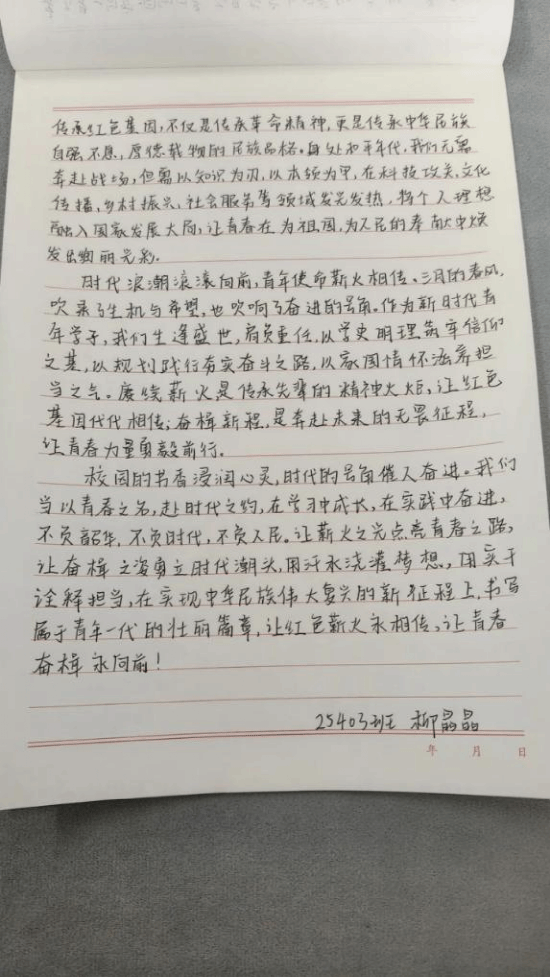 传承红色基因,不仅是传承革命精神,更是传承中华民族
自强不息,厚德载物的民族品格。身处和平年代,我们无需
奔赴战场,但需以知识为刃,以本领为甲,在科技攻关,文化
传播,乡村振兴,社会服务等领域发光发热,将个人理想
融入国家发展大局,让青春在为祖国,为人民的奉献中焕
发出绚丽光彩。
时代浪潮滚滚向前,青年使命薪火相传。三月的春风,
吹来了生机与希望,也吹响了奋进的号角。作为新时代青
年学子,我们生逢盛世,肩负重任,以学史明理筑牢信仰
之基,以规划践行夯实奋斗之路,以家国情怀涵养担
当之气。赓续薪火是传承先辈的精神火炬,让红色
基因代代相传;奋楫新程,是奔赴未来的无畏征程,
让青春力量勇毅前行。
校园的书香浸润心灵,时代的号角催人奋进。我们
当以青春之名,赴时代之约,在学习中成长,在实践中奋进,
不负韶华,不负时代,不负人民。让薪火之光点亮青春之路,
让奋楫之姿勇立时代潮头,用汗水浇灌梦想,用实干
诠释担当,在实现中华民族伟大复兴的新征程上,书写
属于青年一代的壮丽篇章,让红色薪火永相传,让青春
奋楫永向前!
25403班 柳晶晶
年 月 日